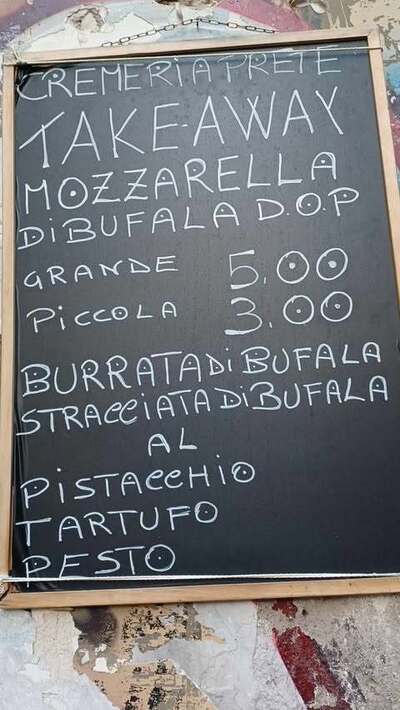 CREMERIA PRETE
TAKE-AWAY
MOZZARELLA
Di BUFALA D.O.P
GRANDE 5.00
PiCCOLA 3.00
BURRATA Di BUFALA
STRACCIATA Di BUFALA
AL
PiSTACCHIO
TARTUFO
PESTO